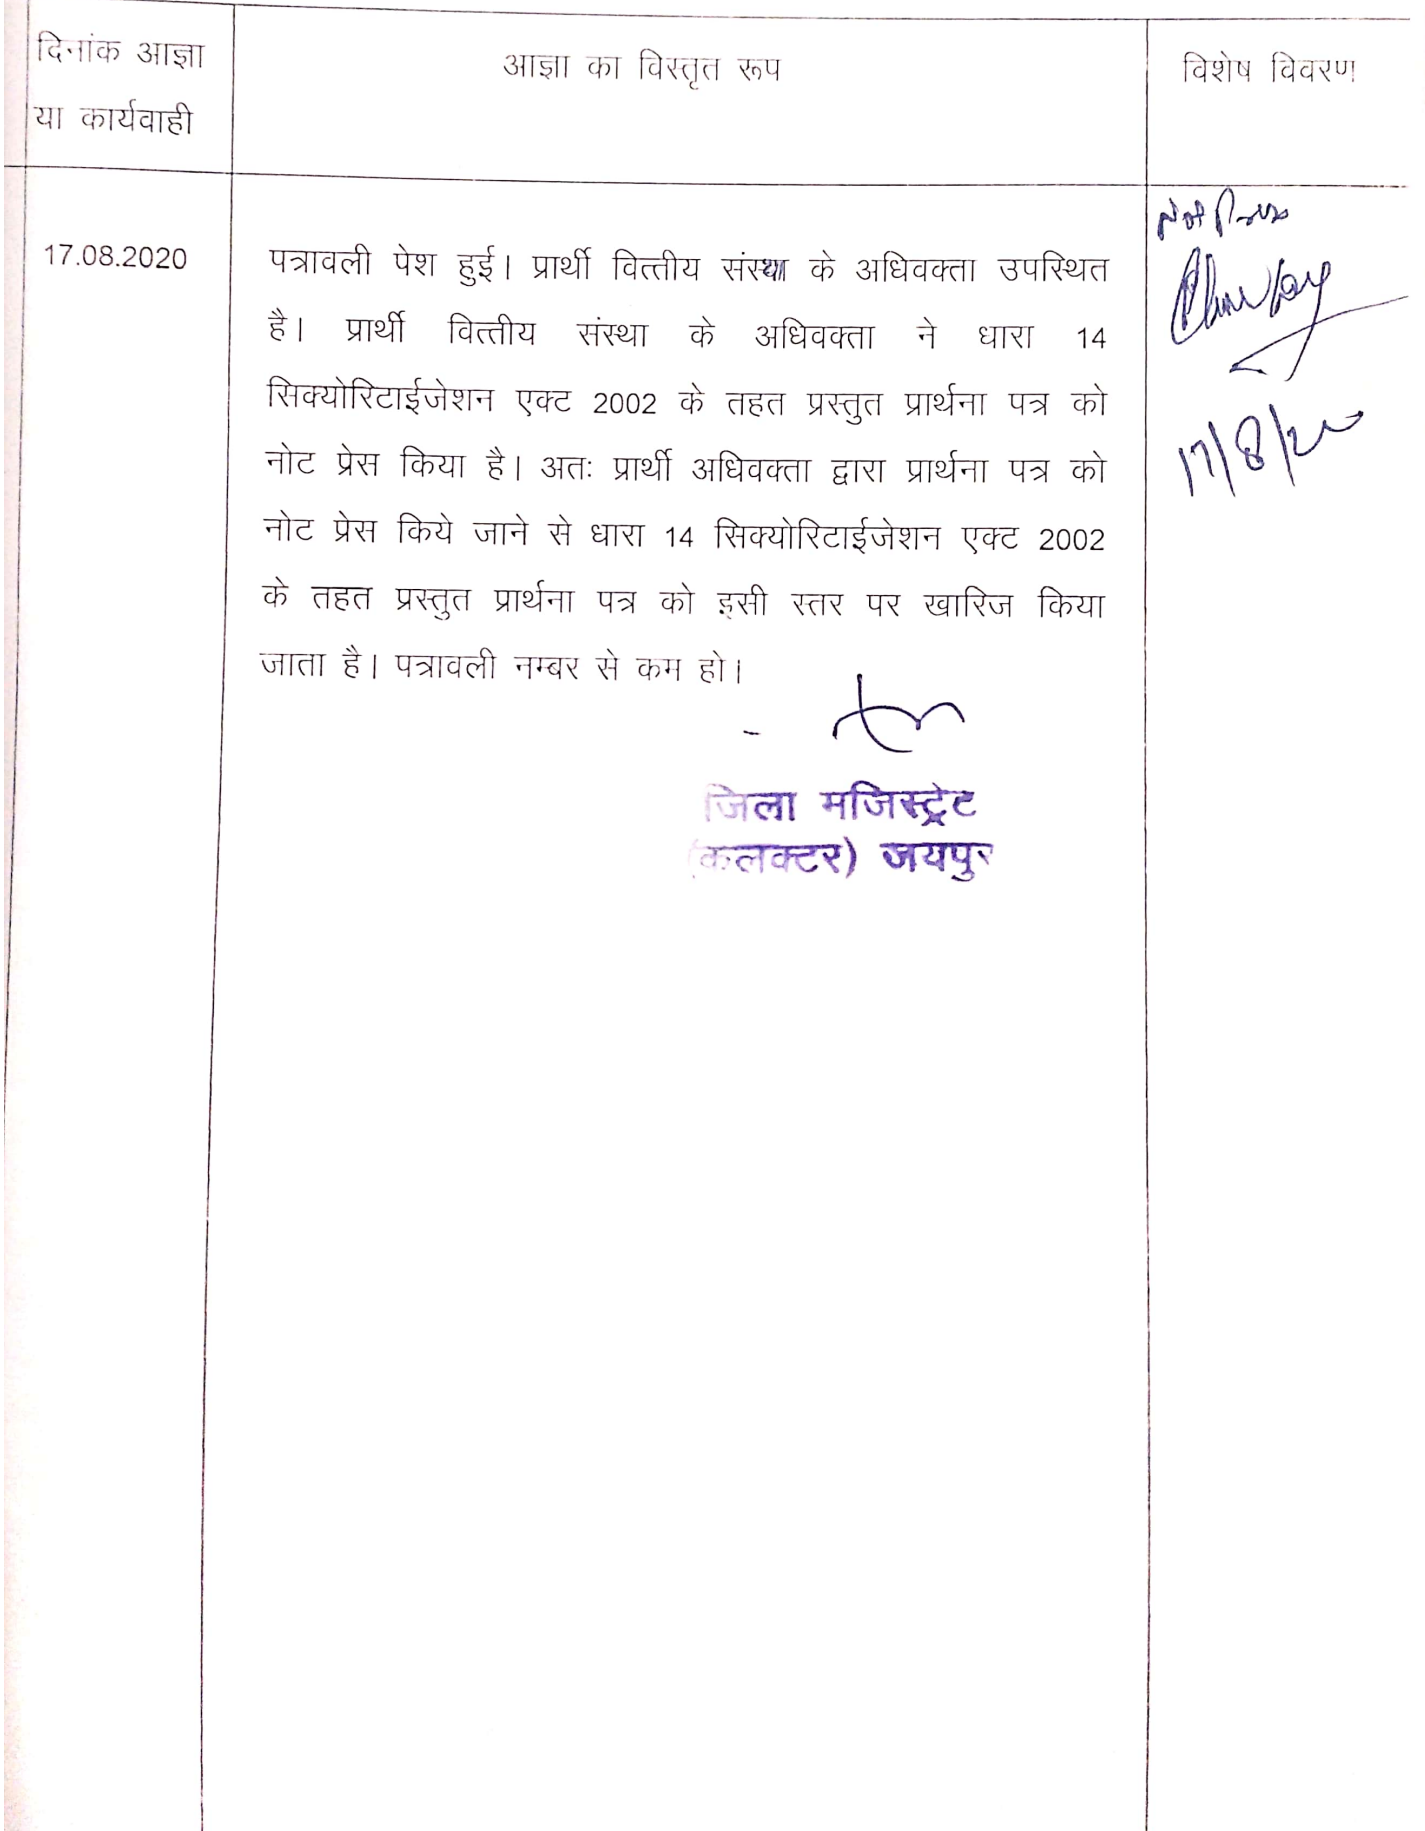 दिनांक आज्ञा
या कार्यवाही
आज्ञा का विस्तृत रूप
विशेष विवरण
17.08.2020
पत्रावली पेश हुई। प्रार्थी वित्तीय संस्था के अधिवक्ता उपस्थित
है। प्रार्थी वित्तीय संस्था के अधिवक्ता ने धारा 14
सिक्योरिटाईजेशन एक्ट 2002 के तहत प्रस्तुत प्रार्थना पत्र को
नोट प्रेस किया है। अतः प्रार्थी अधिवक्ता द्वारा प्रार्थना पत्र को
नोट प्रेस किये जाने से धारा 14 सिक्योरिटाईजेशन एक्ट 2002
के तहत प्रस्तुत प्रार्थना पत्र को इसी स्तर पर खारिज किया
जाता है। पत्रावली नम्बर से कम हो।
जिला मजिस्ट्रेट
(कलक्टर) जयपुर
Not Press